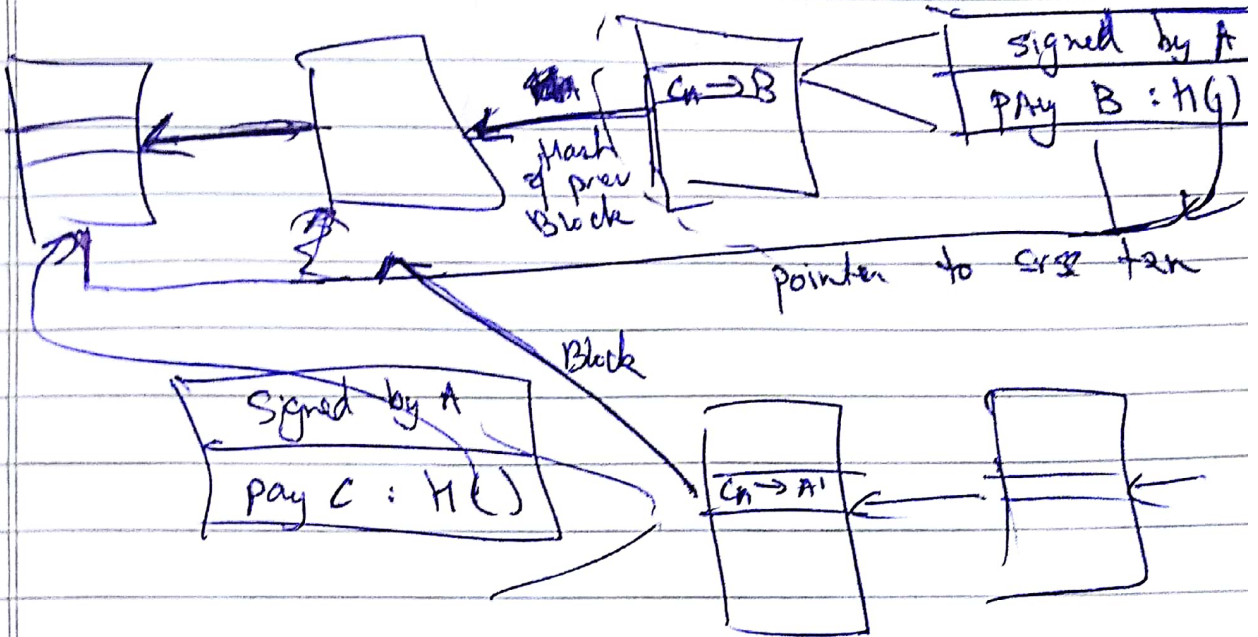 signed by A
PAy B : H()
CA → B
Hash
of prev
Block
pointer to txn
Block
Signed by A
pay C : H()
CA → A'